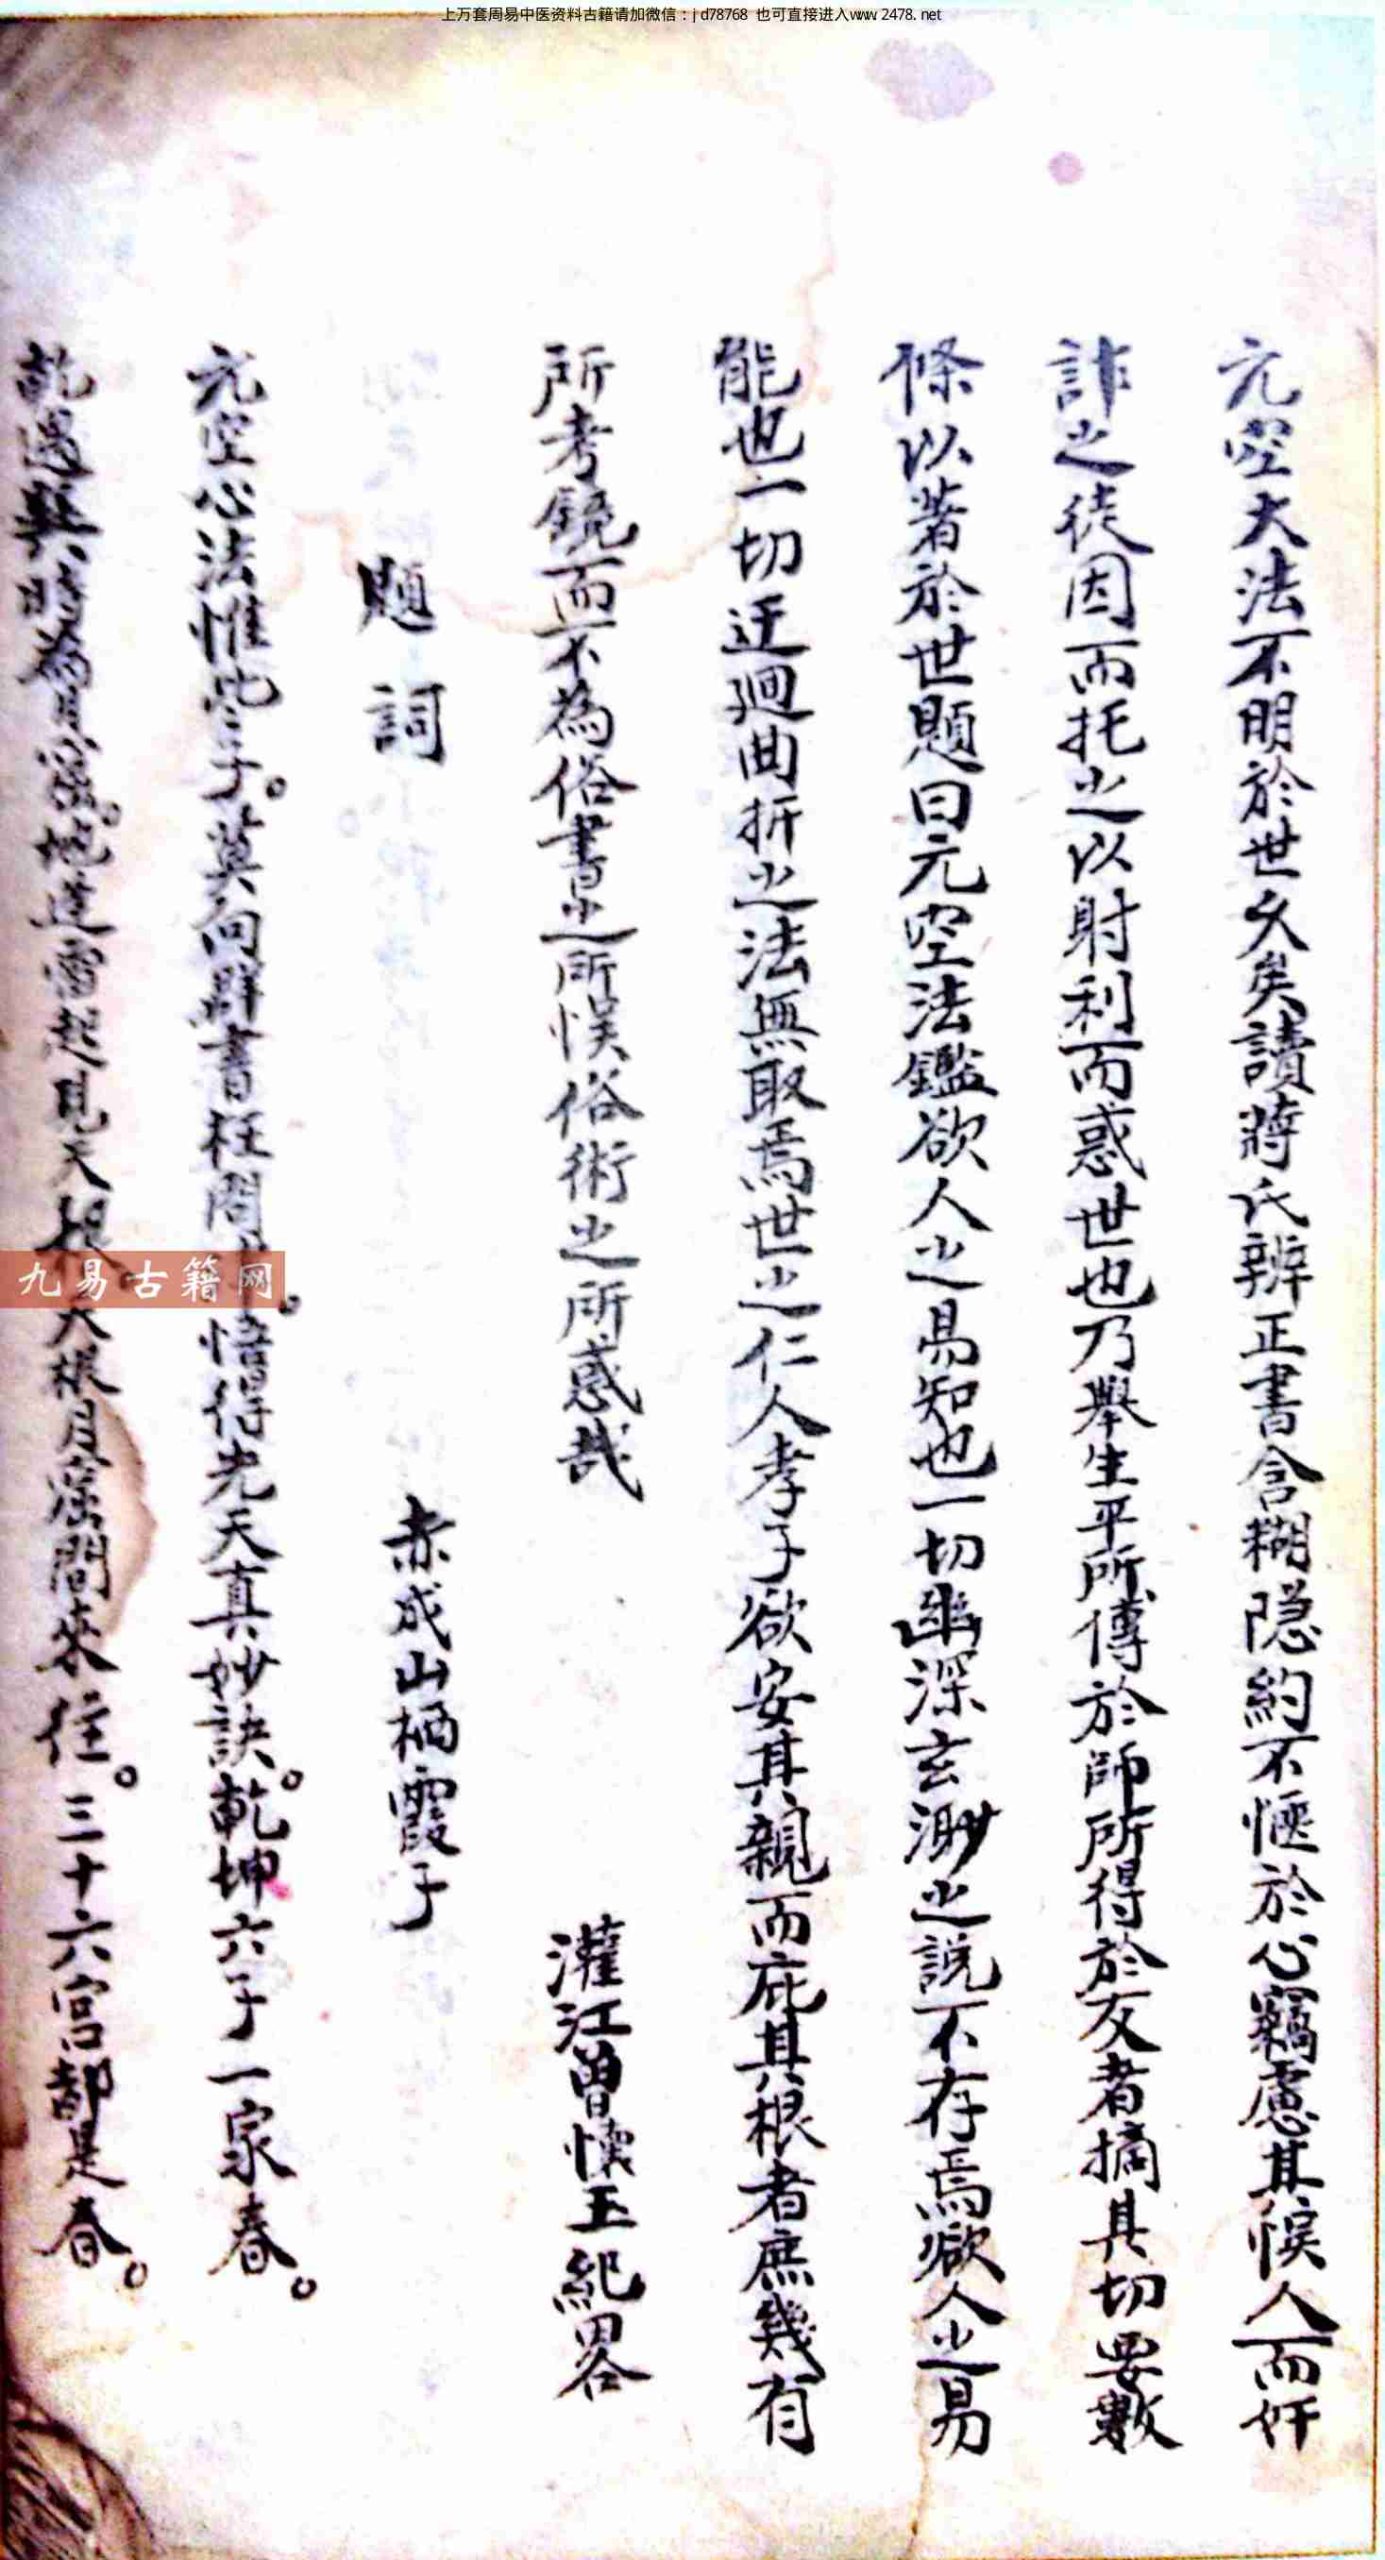 上万套周易中医资料古籍请加微信：jd78768 也可直接进入www.2478.net
元空大法不明於世久矣讀蔣氏辨正書含糊隐約不愜於心竊慮其悮人而奸
詐之徒因而托之以射利而惑世也乃舉生平所傳於師所得於友者摘其切要數
條以著於世題曰元空法鑑欲人之易知也一切幽深玄渺之説不存焉欲人之易
能也一切迂廻曲折之法無取焉世之仁人孝子欲安其親而庇其根者庶幾有
所考鏡而不為俗書之所悮俗術之所惑哉
灌江曾懷玉紀畧
題詞
赤成山栖霞子
元空心法惟些子。莫向群書枉問。悟得先天真妙訣。乾坤六子一家春。
乾遇巽時為月窟。地逢雷起見天根天根月窟間來往。三十六宫都是春。
九易古籍网